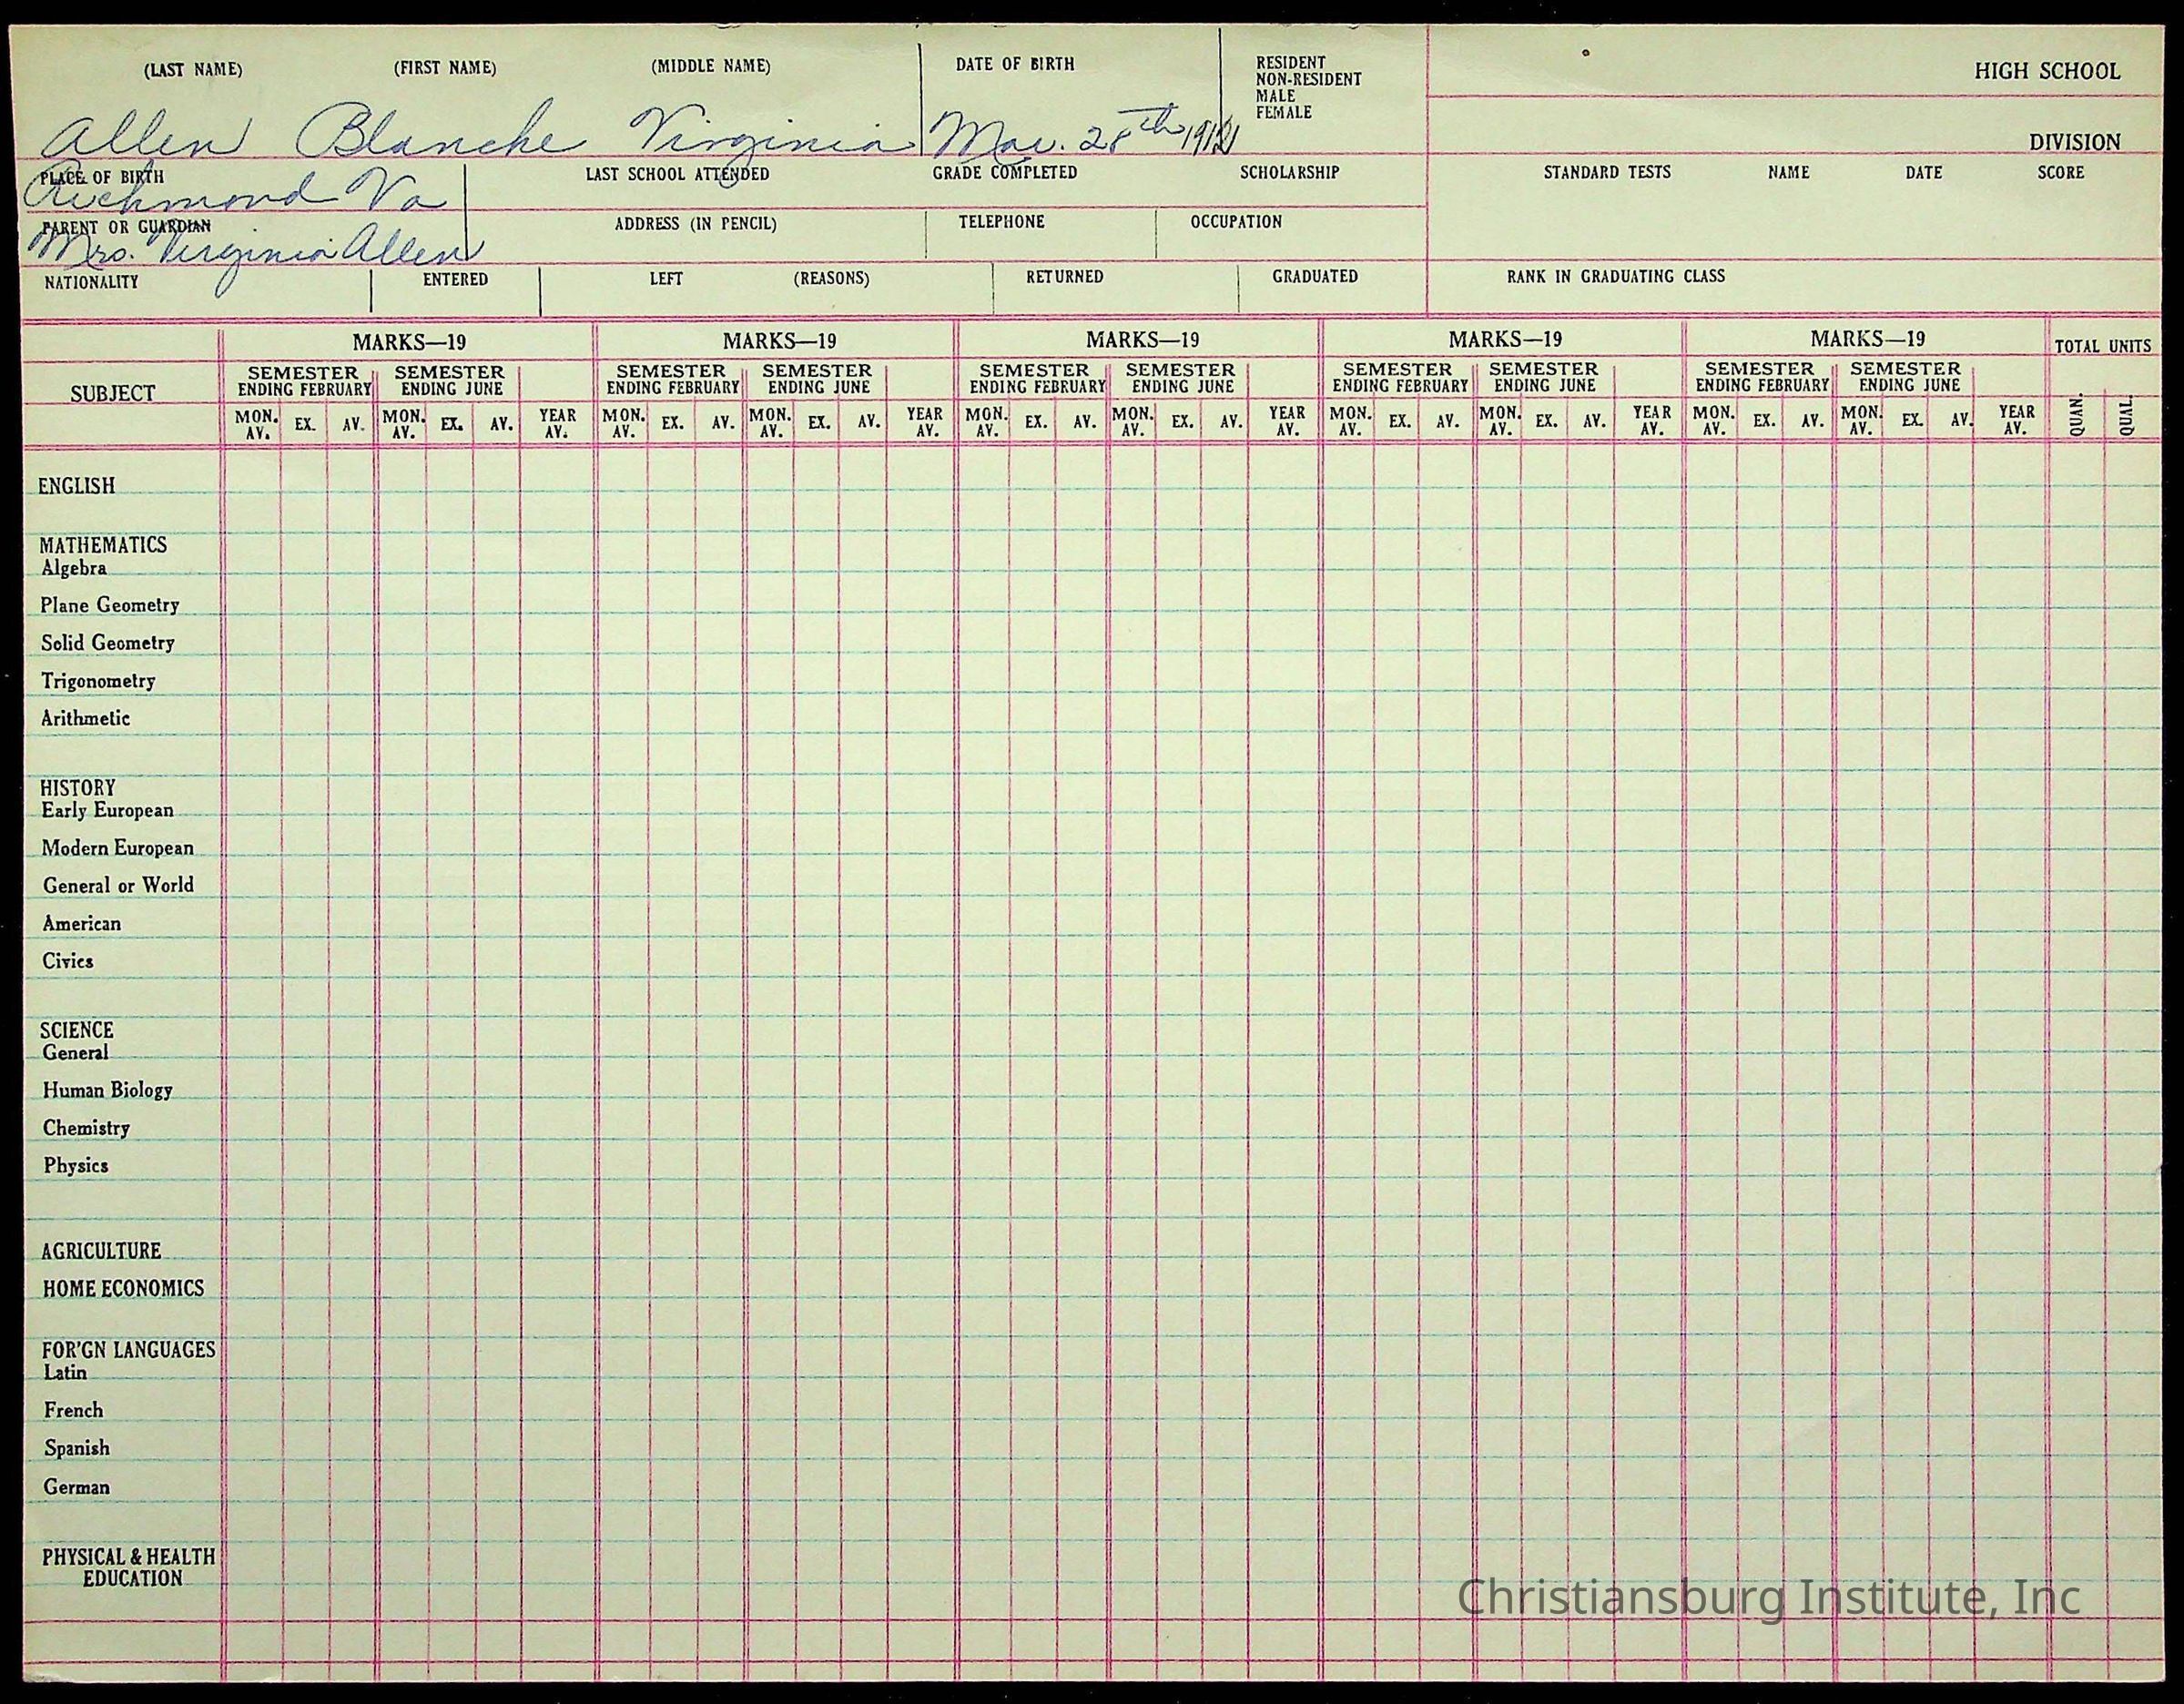 (LAST NAME) (FIRST NAME) (MIDDLE NAME) DATE OF BIRTH RESIDENT HIGH SCHOOL
NON-RESIDENT
MALE
FEMALE
Allen Blanche Virginia
DIVISION
PLACE OF BIRTH LAST SCHOOL ATTENDED GRADE COMPLETED SCHOLARSHIP STANDARD TESTS NAME DATE SCORE
Richmond Va
PARENT OR GUARDIAN ADDRESS (IN PENCIL) TELEPHONE OCCUPATION
Mrs. Virginia Allen
NATIONALITY ENTERED LEFT (REASONS) RETURNED GRADUATED RANK IN GRADUATING CLASS
MARKS—19 MARKS—19 MARKS—19 MARKS—19 MARKS—19 TOTAL UNITS
SUBJECT
SEMESTER SEMESTER SEMESTER SEMESTER SEMESTER SEMESTER SEMESTER SEMESTER SEMESTER SEMESTER
ENDING FEBRUARY ENDING JUNE ENDING FEBRUARY ENDING JUNE ENDING FEBRUARY ENDING JUNE ENDING FEBRUARY ENDING JUNE ENDING FEBRUARY ENDING JUNE
MON. AV. EX. AV. MON. AV. EX. AV. YEAR AV. MON. AV. EX. AV. MON. AV. EX. AV. YEAR AV. MON. AV. EX. AV. MON. AV. EX. AV. YEAR AV. MON. AV. EX. AV. MON. AV. EX. AV. YEAR AV. MON. AV. EX. AV. MON. AV. EX. AV. YEAR AV. QUAN. QUAL.
ENGLISH
MATHEMATICS
Algebra
Plane Geometry
Solid Geometry
Trigonometry
Arithmetic
HISTORY
Early European
Modern European
General or World
American
Civics
SCIENCE
General
Human Biology
Chemistry
Physics
AGRICULTURE
HOME ECONOMICS
FOR'GN LANGUAGES
Latin
French
Spanish
German
PHYSICAL & HEALTH
EDUCATION
Christiansburg Institute, Inc